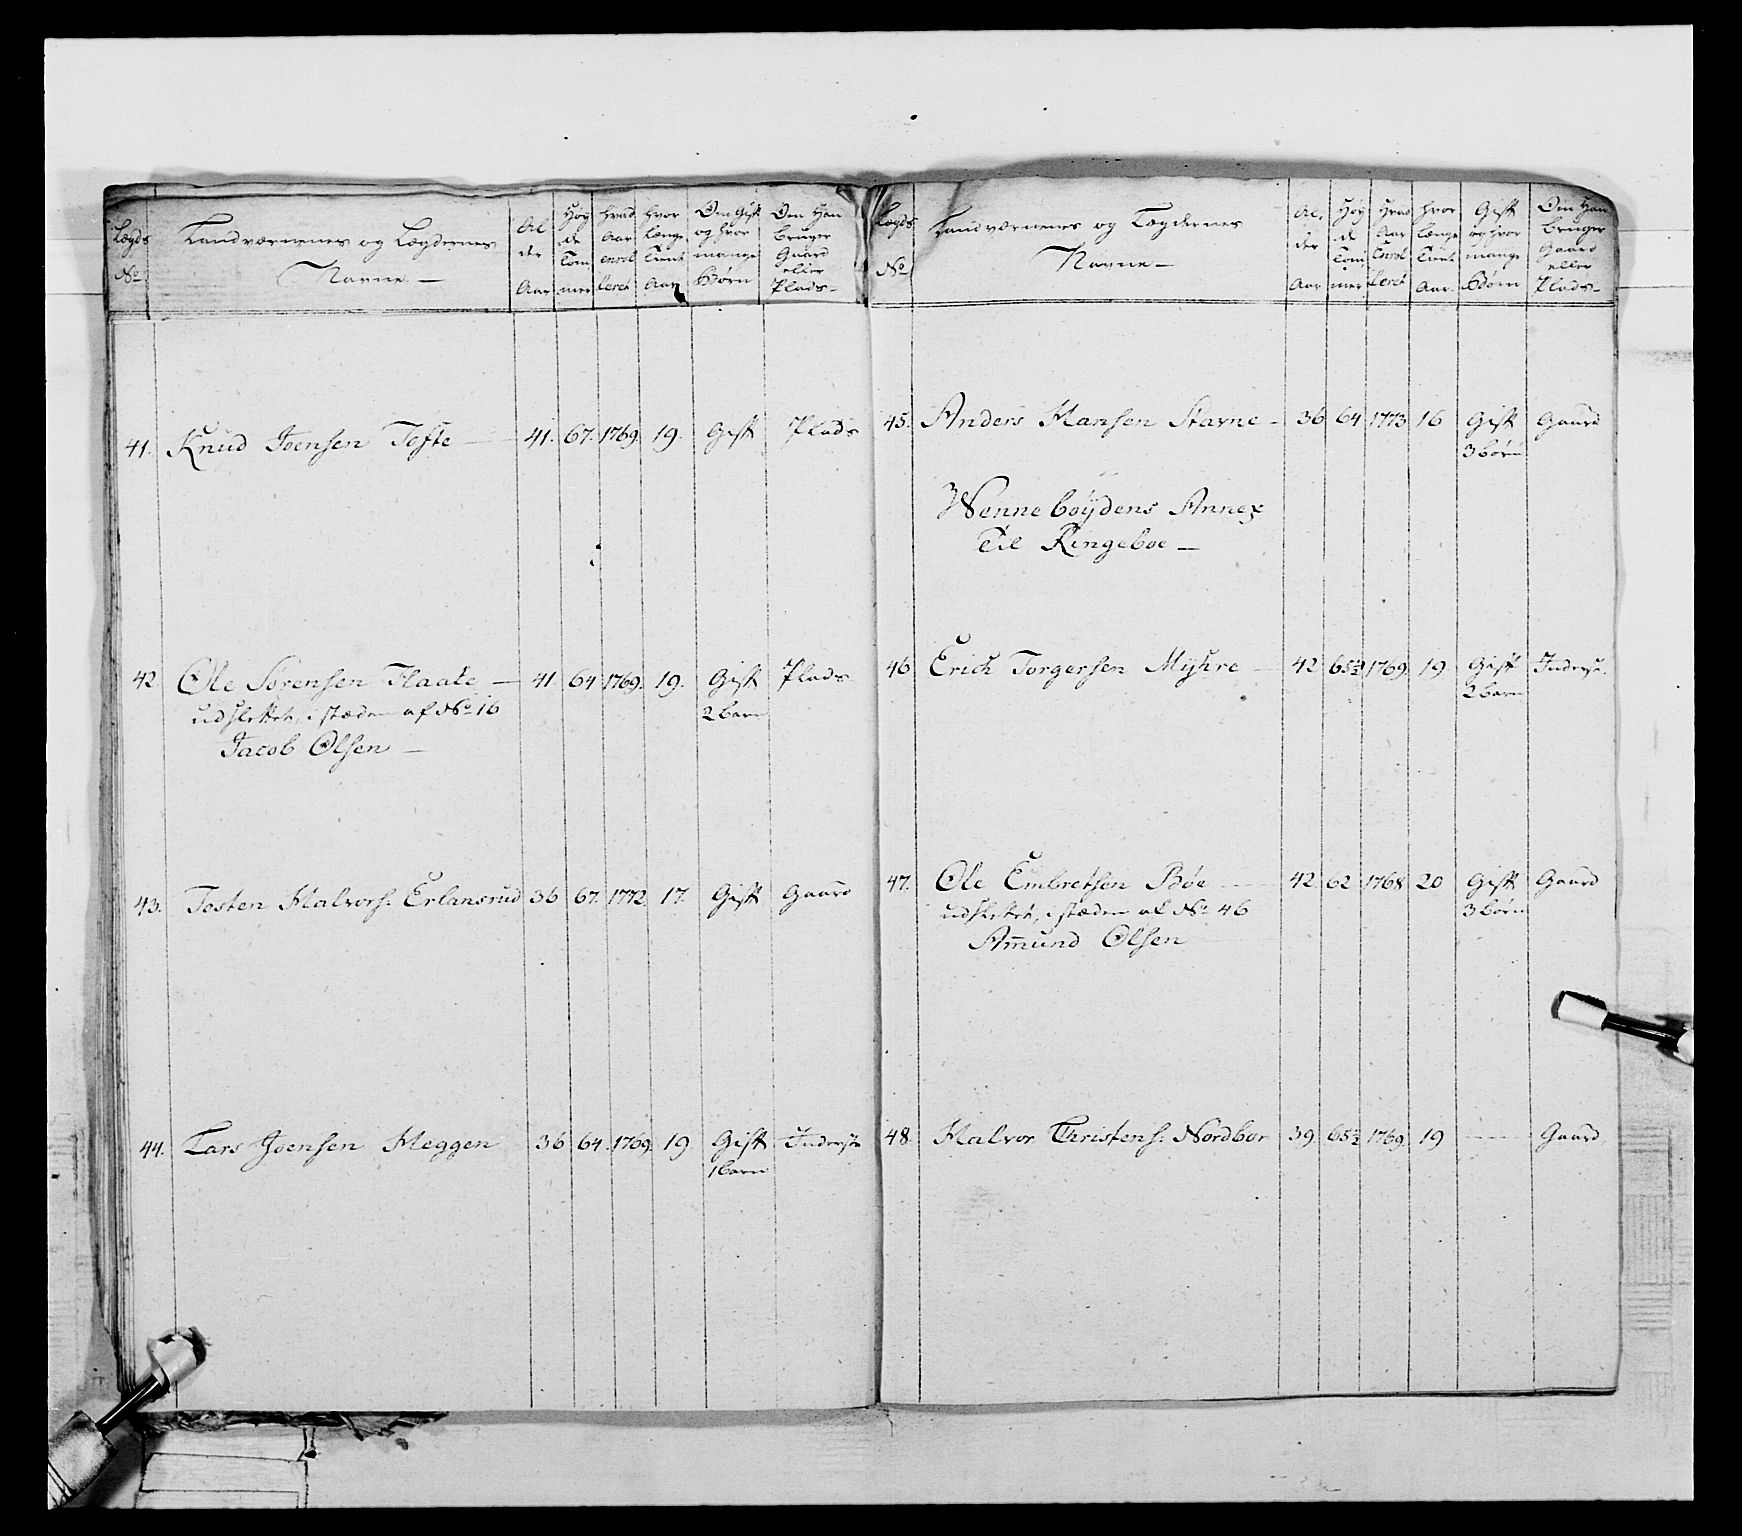 Lægds No. | Landværnenes og Lægdernes Navne — | Al der Aar | Høy de Tom mer | hvad Aar enrol leret | hvor længe Tient Aar | Om Gift og hvor mange Børn | Om Han bruger Gaard eller Plads —
41. Knud Joensen Tofte — 41. 67. 1769. 19. Gift Plads
42. Ole Sørensen Flaate — 41. 64 1769. 19. Gift Plads
udslettet, i stæden af No. 16 2 barn
Jacob Olsen —
43. Tosten Halvors. Erlansrud 36 67. 1772 17. Gift Gaard
44. Lars Joensen Heggen 36 64. 1769. 19 Gift Inderst
1 barn
Lægds No. | Landværnenes og Lægdernes Navne — | Al, der Aar | Høy de Tom, mer | Hvad Aar Enrol leret | hvor længe Tient Aar. | Gift og hvor mange Børn | Om Han bruger Gaard eller Plads —
45. Anders Hansen Stavne — 36 64 1773 16 Gift Gaard
3 børn
Wennebøydens Annex
Til Ringeboe —
46 Erich Torgersen Myhre — 42 65½ 1769. 19. Gift Inderst.
2 barn
47. Ole Embretsen Bøe — 42 62 1768 20 Gift Gaard
udslettet, i stæden af No. 46 3 børn
Am̄und Olsen
48. Halvor Christens. Nordbor 39 65½ 1769. 19 — Gaard